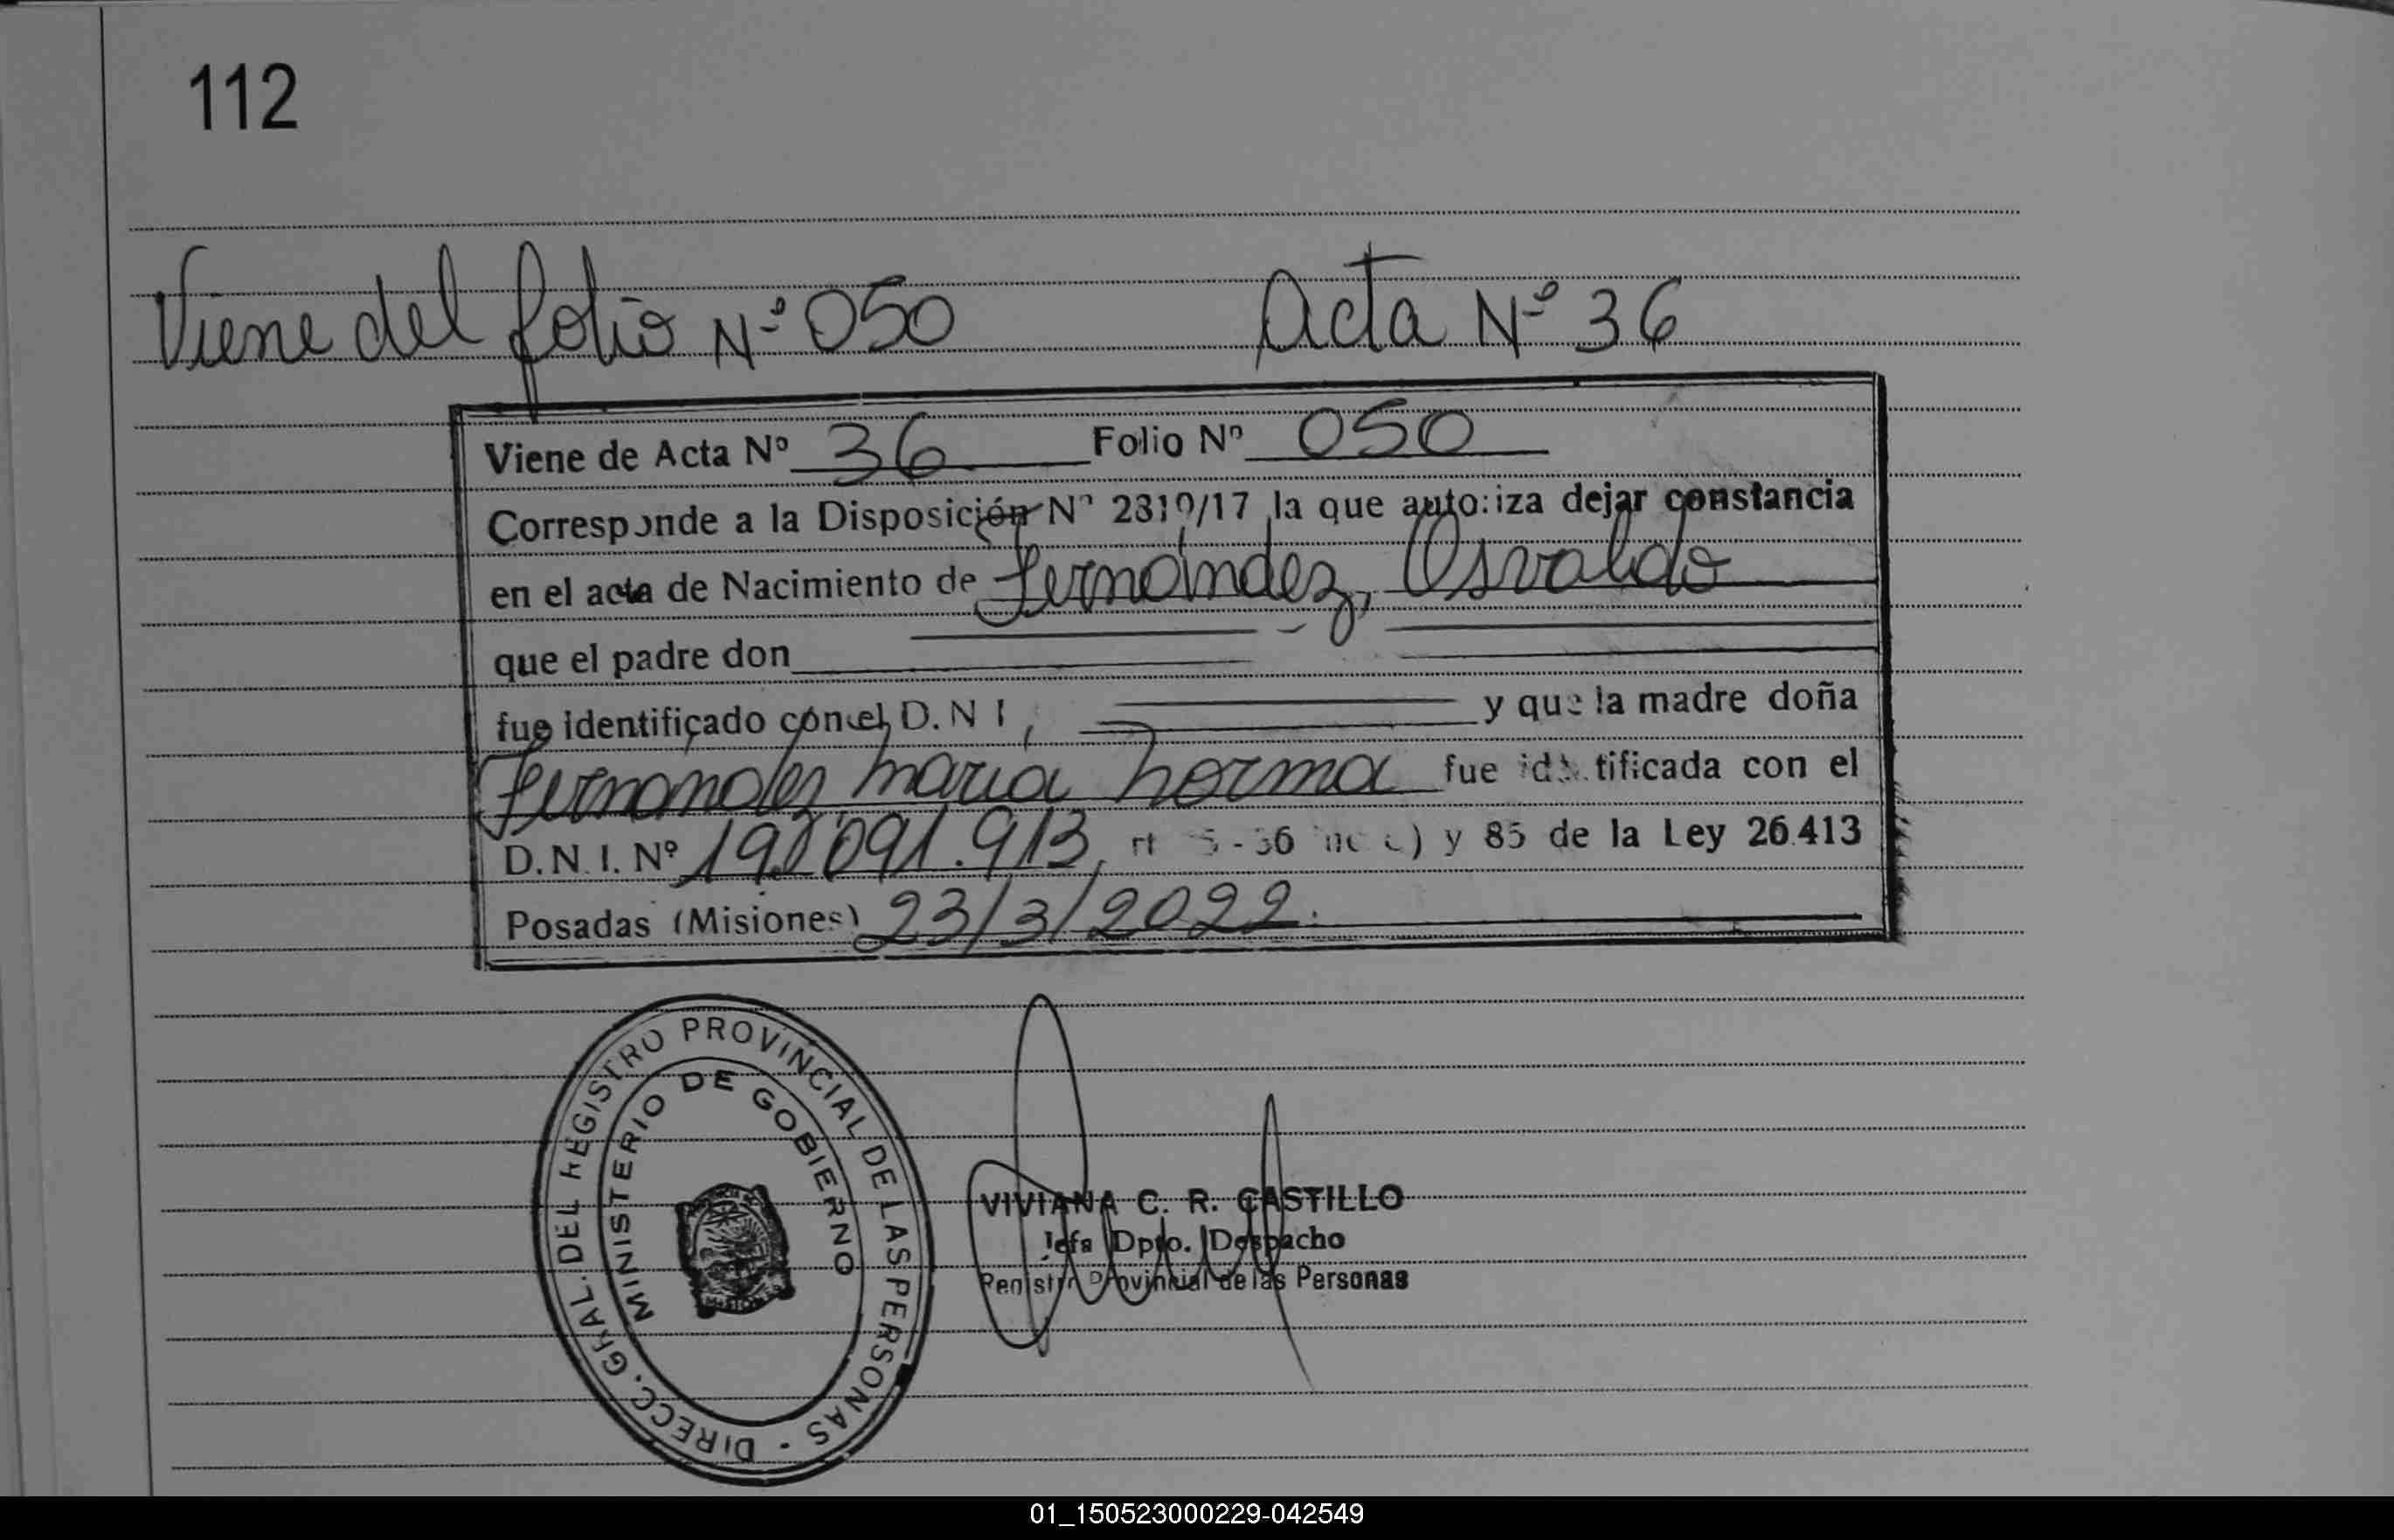 112
Viene del folio Nº 050 Acta Nº 36
Viene de Acta Nº 36 Folio Nº 050
Corresponde a la Disposición Nº 2310/17 la que autoriza dejar constancia
en el acta de Nacimiento de Fernández, Osvaldo
que el padre don
fue identificado con el D. N I, y que la madre doña
Fernandez maria norma fue identificada con el
D. N. I. Nº 091.913, y 85 de la Ley 26.413
Posadas (Misiones) 23/3/2022.
DIRECC. GRAL. DEL REGISTRO PROVINCIAL DE LAS PERSONAS -
MINISTERIO DE GOBIERNO
MISIONES
VIVIANA C. R. CASTILLO
Jefa Dpto. Despacho
Registro Provincial de las Personas
01_150523000229-042549